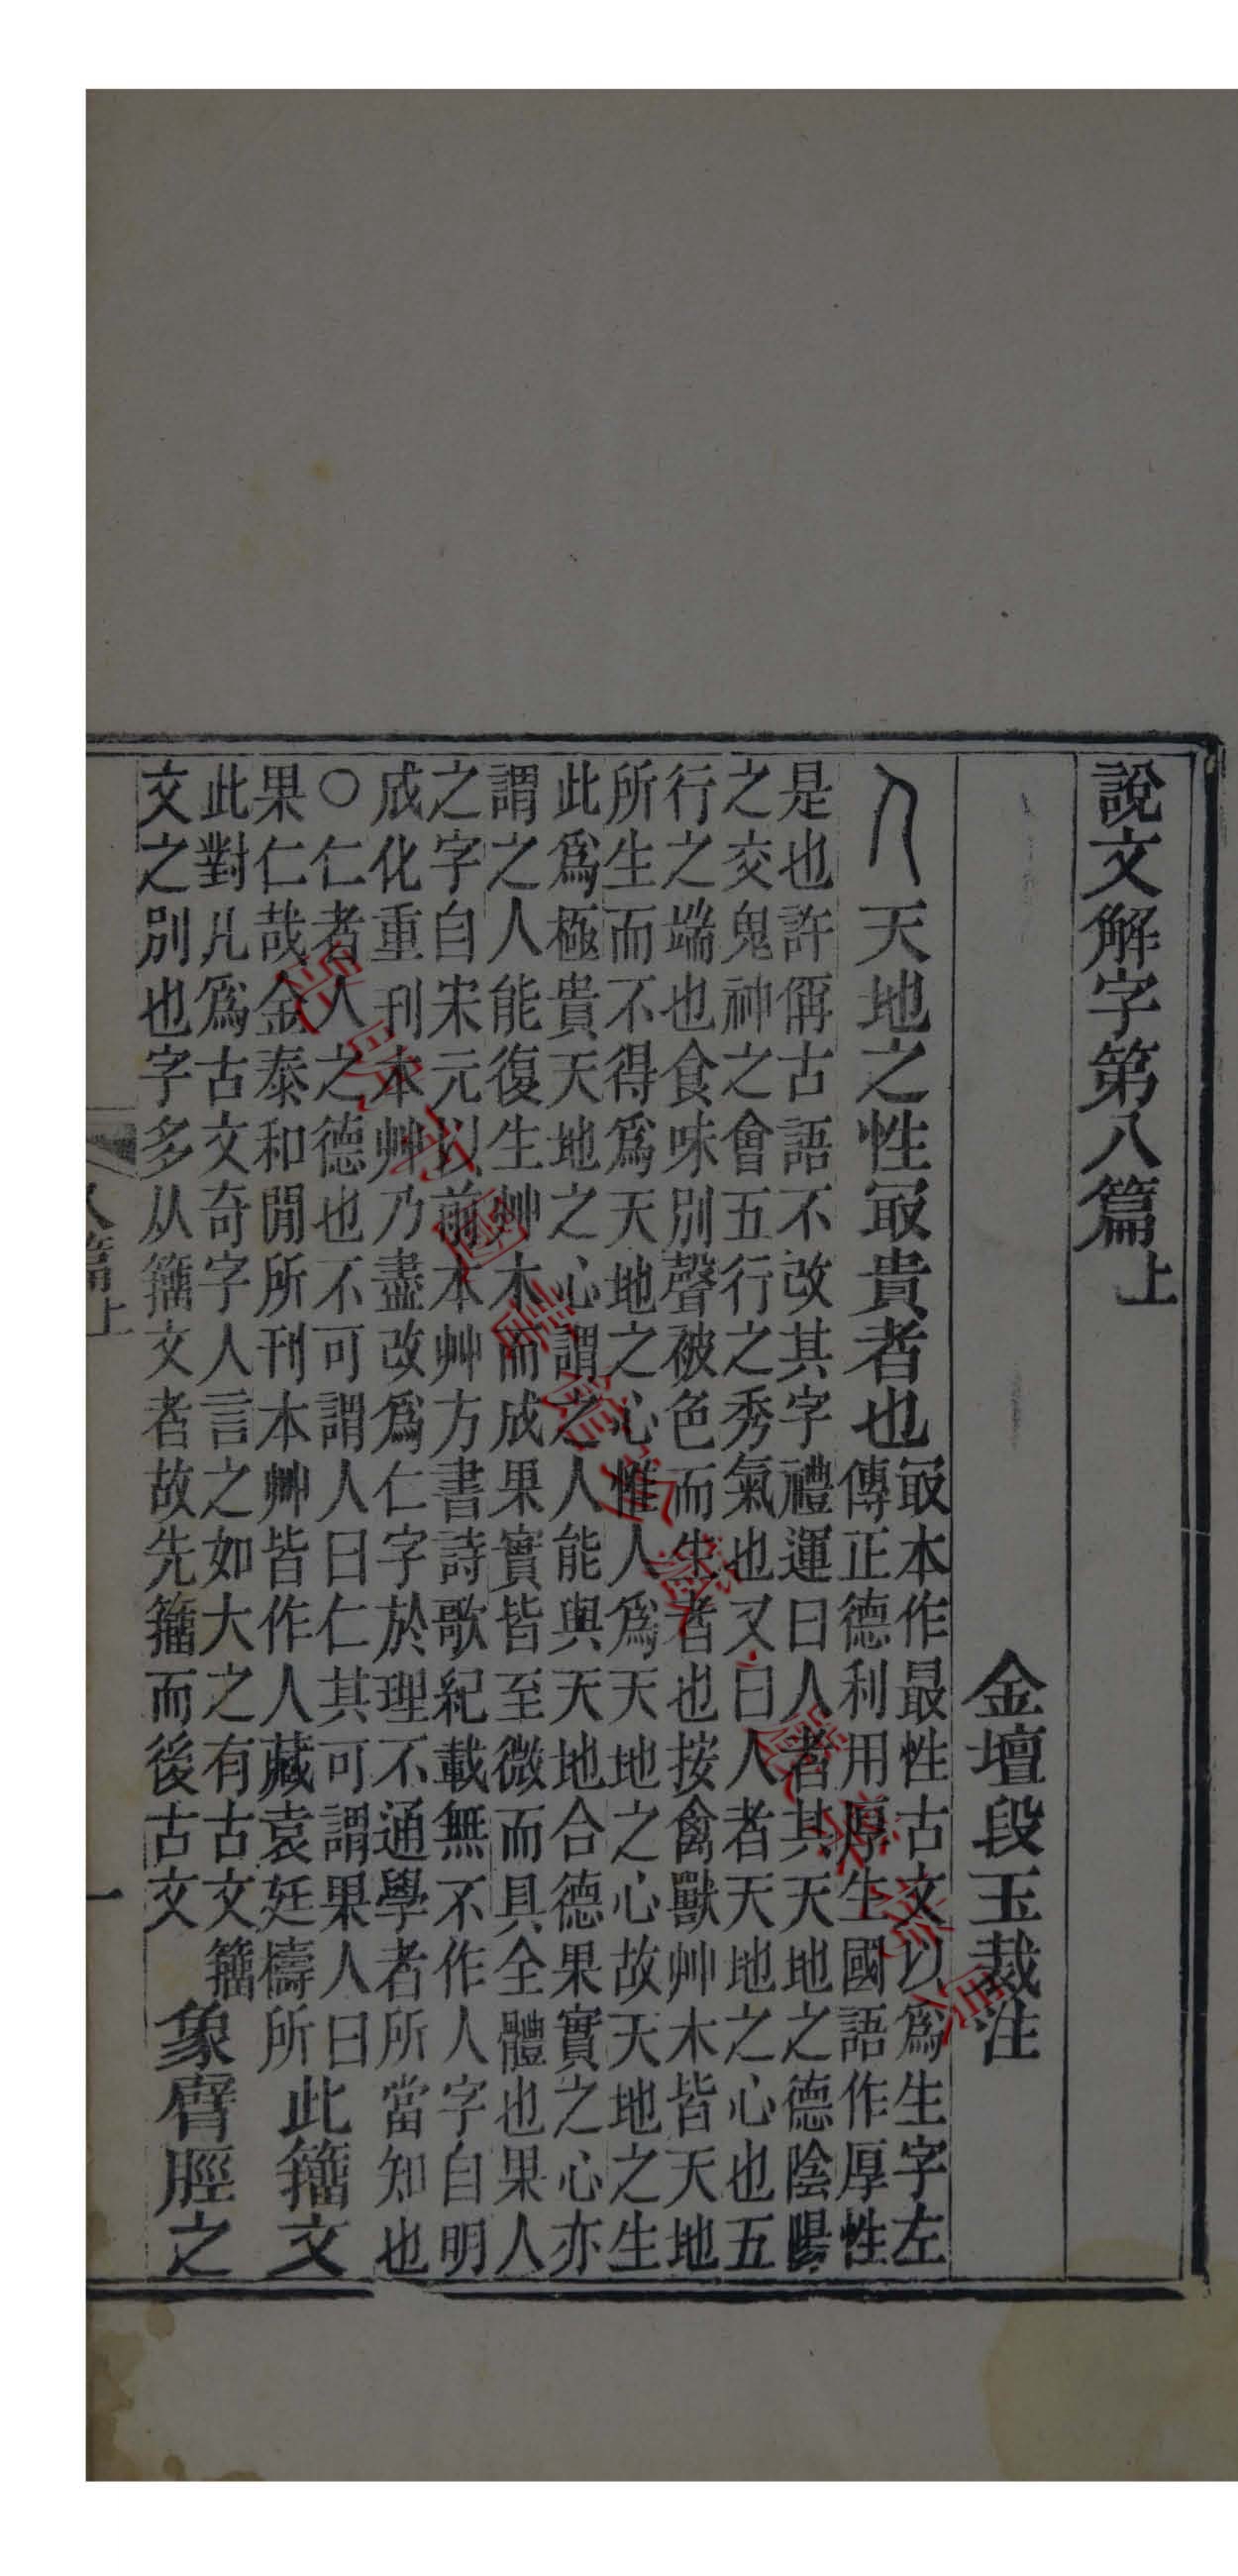 說文解字第八篇上
金壇段玉裁注
人天地之性冣貴者也
冣本作最性古文以爲生字左
傳正德利用厚生國語作厚性
是也許偁古語不改其字禮運曰人者其天地之德陰陽
之交鬼神之會五行之秀氣也又曰人者天地之心也五
行之端也食味別聲被色而生者也按禽獸艸木皆天地
所生而不得爲天地之心惟人爲天地之心故天地之生
此爲極貴天地之心謂之人能與天地合德果實之心亦
謂之人能復生艸木而成果實皆至微而具全體也果人
之字自宋元以前本艸方書詩歌紀載無不作人字自明
成化重刊本艸乃盡改爲仁字於理不通學者所當知也
○仁者人之德也不可謂人曰仁其可謂果人曰
果仁哉金泰和閒所刊本艸皆作人藏袁廷檮所
此籒文
此對凡爲古文奇字人言之如大之有古文籒
文之別也字多从籒文者故先籒而後古文
象臂脛之
八篇上
一